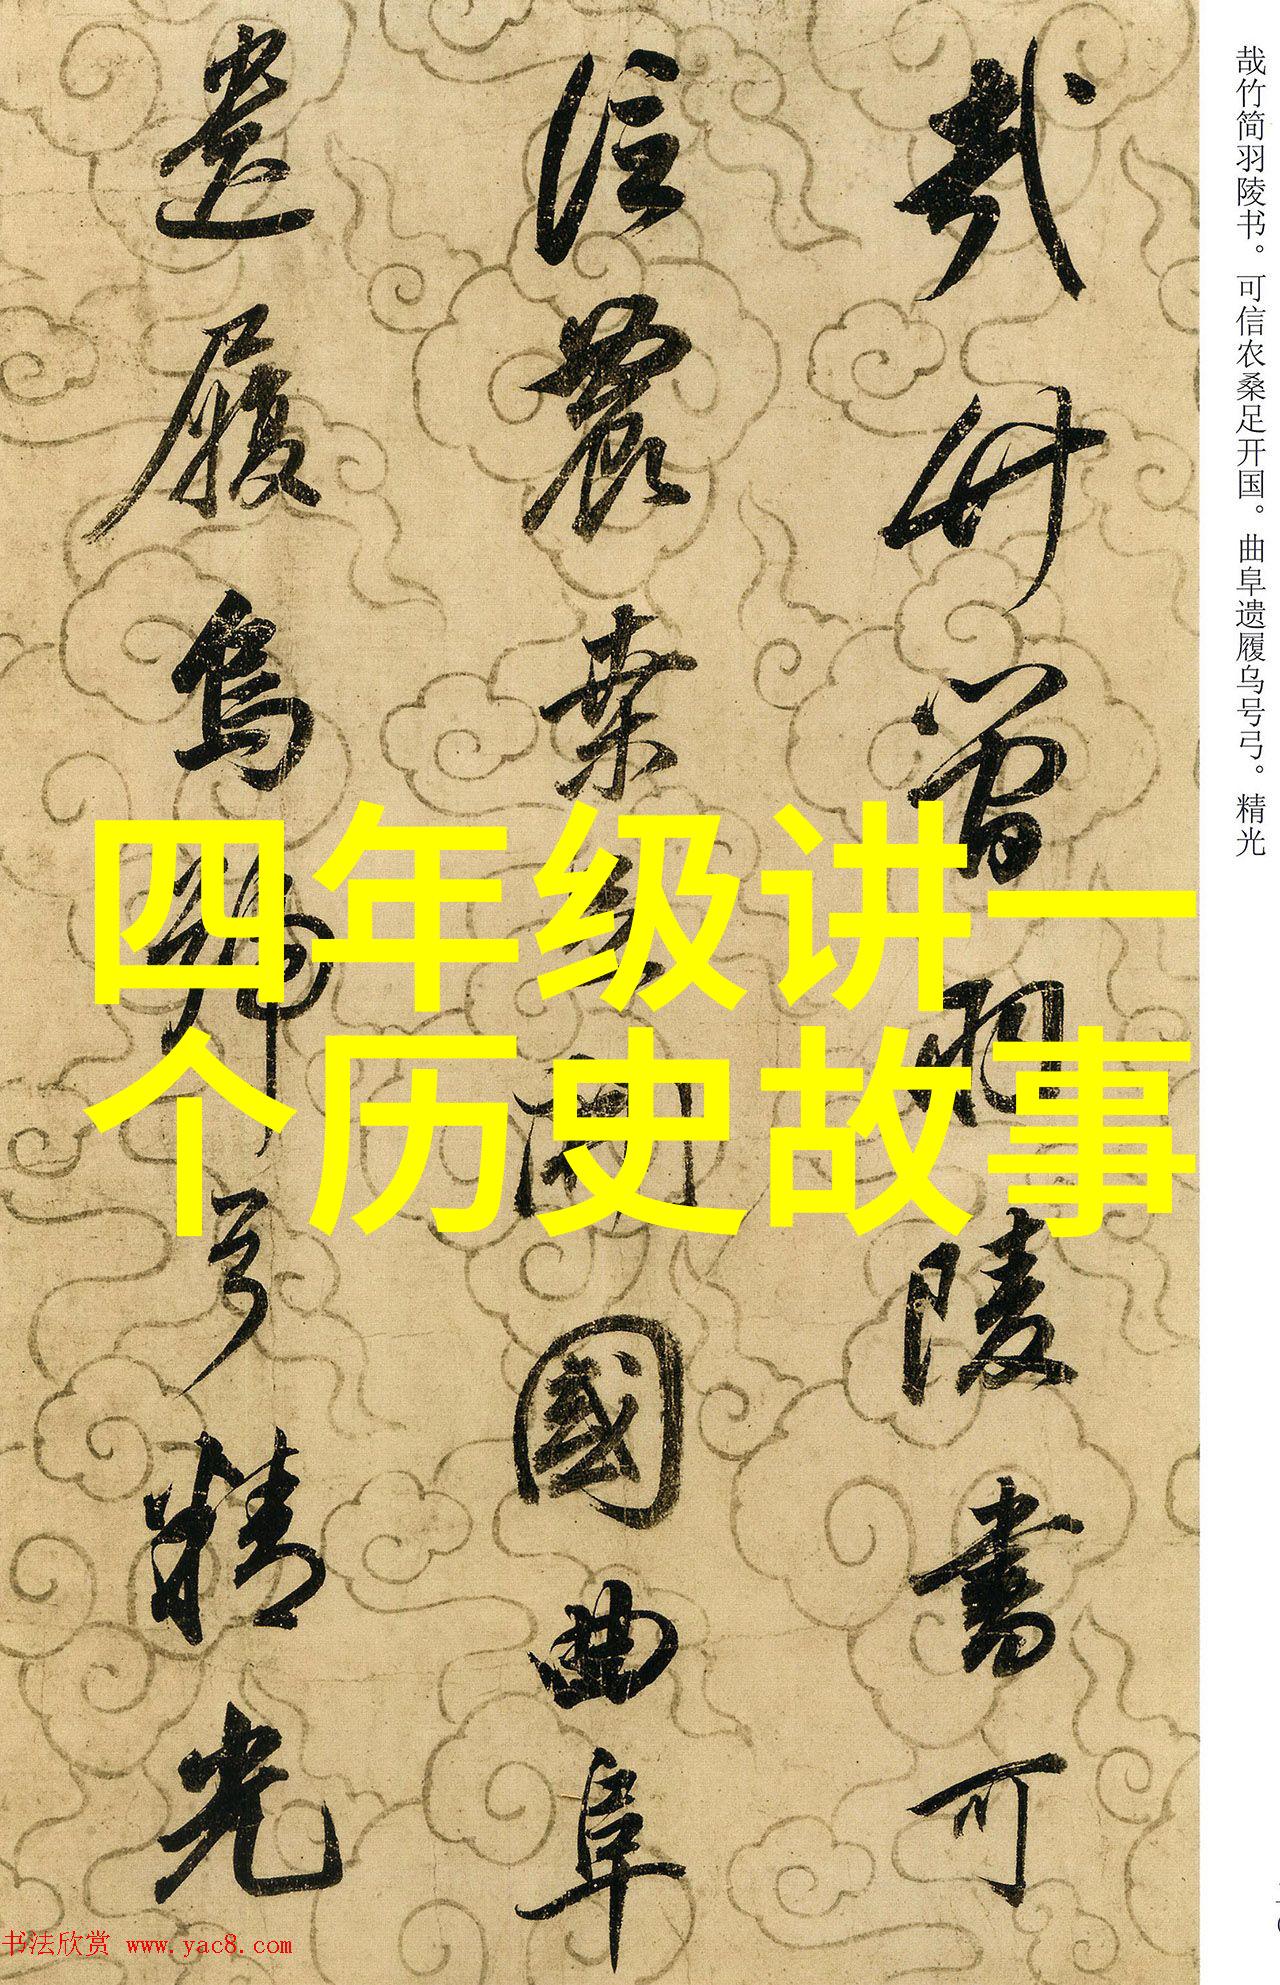 哉竹简羽陵书。可信农桑足开国。曲阜遗履乌号弓。精光
哉竹简羽陵書可
信農桒足開國曲阜
遺履烏號弓精光
四年级讲一
个历史故事
书法欣赏 www.yac8.com